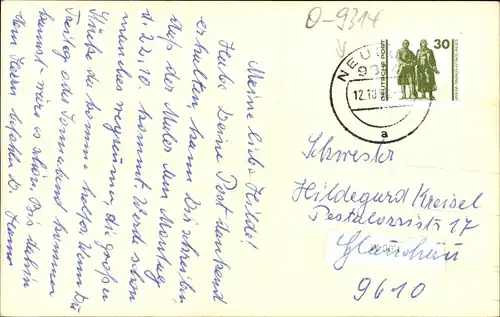 O-9314
Meine liebe Hilde!
Habe Deine Post dankend
erhalten kann Dir schreiben
daß der Maler am Montag
d. 22.10 kommt. Werde schon
manches wegräumen, die großen
Stücke da komme helfen. Wenn Du
Freitag oder Sonnabend kommen
kannst - wäre es schön. Bis dahin
NEU
93
12.10
a
DEUTSCHE POST
30
Schwester
Hildegard Kreisel
Pestalozzistr 17
Glauchau
9610